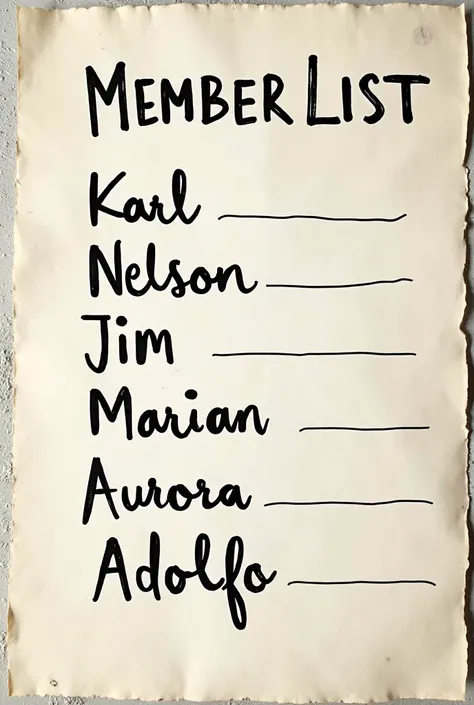 MEMBER LIST
Karl
Nelson
Jim
Marian
Aurora
Adolfo